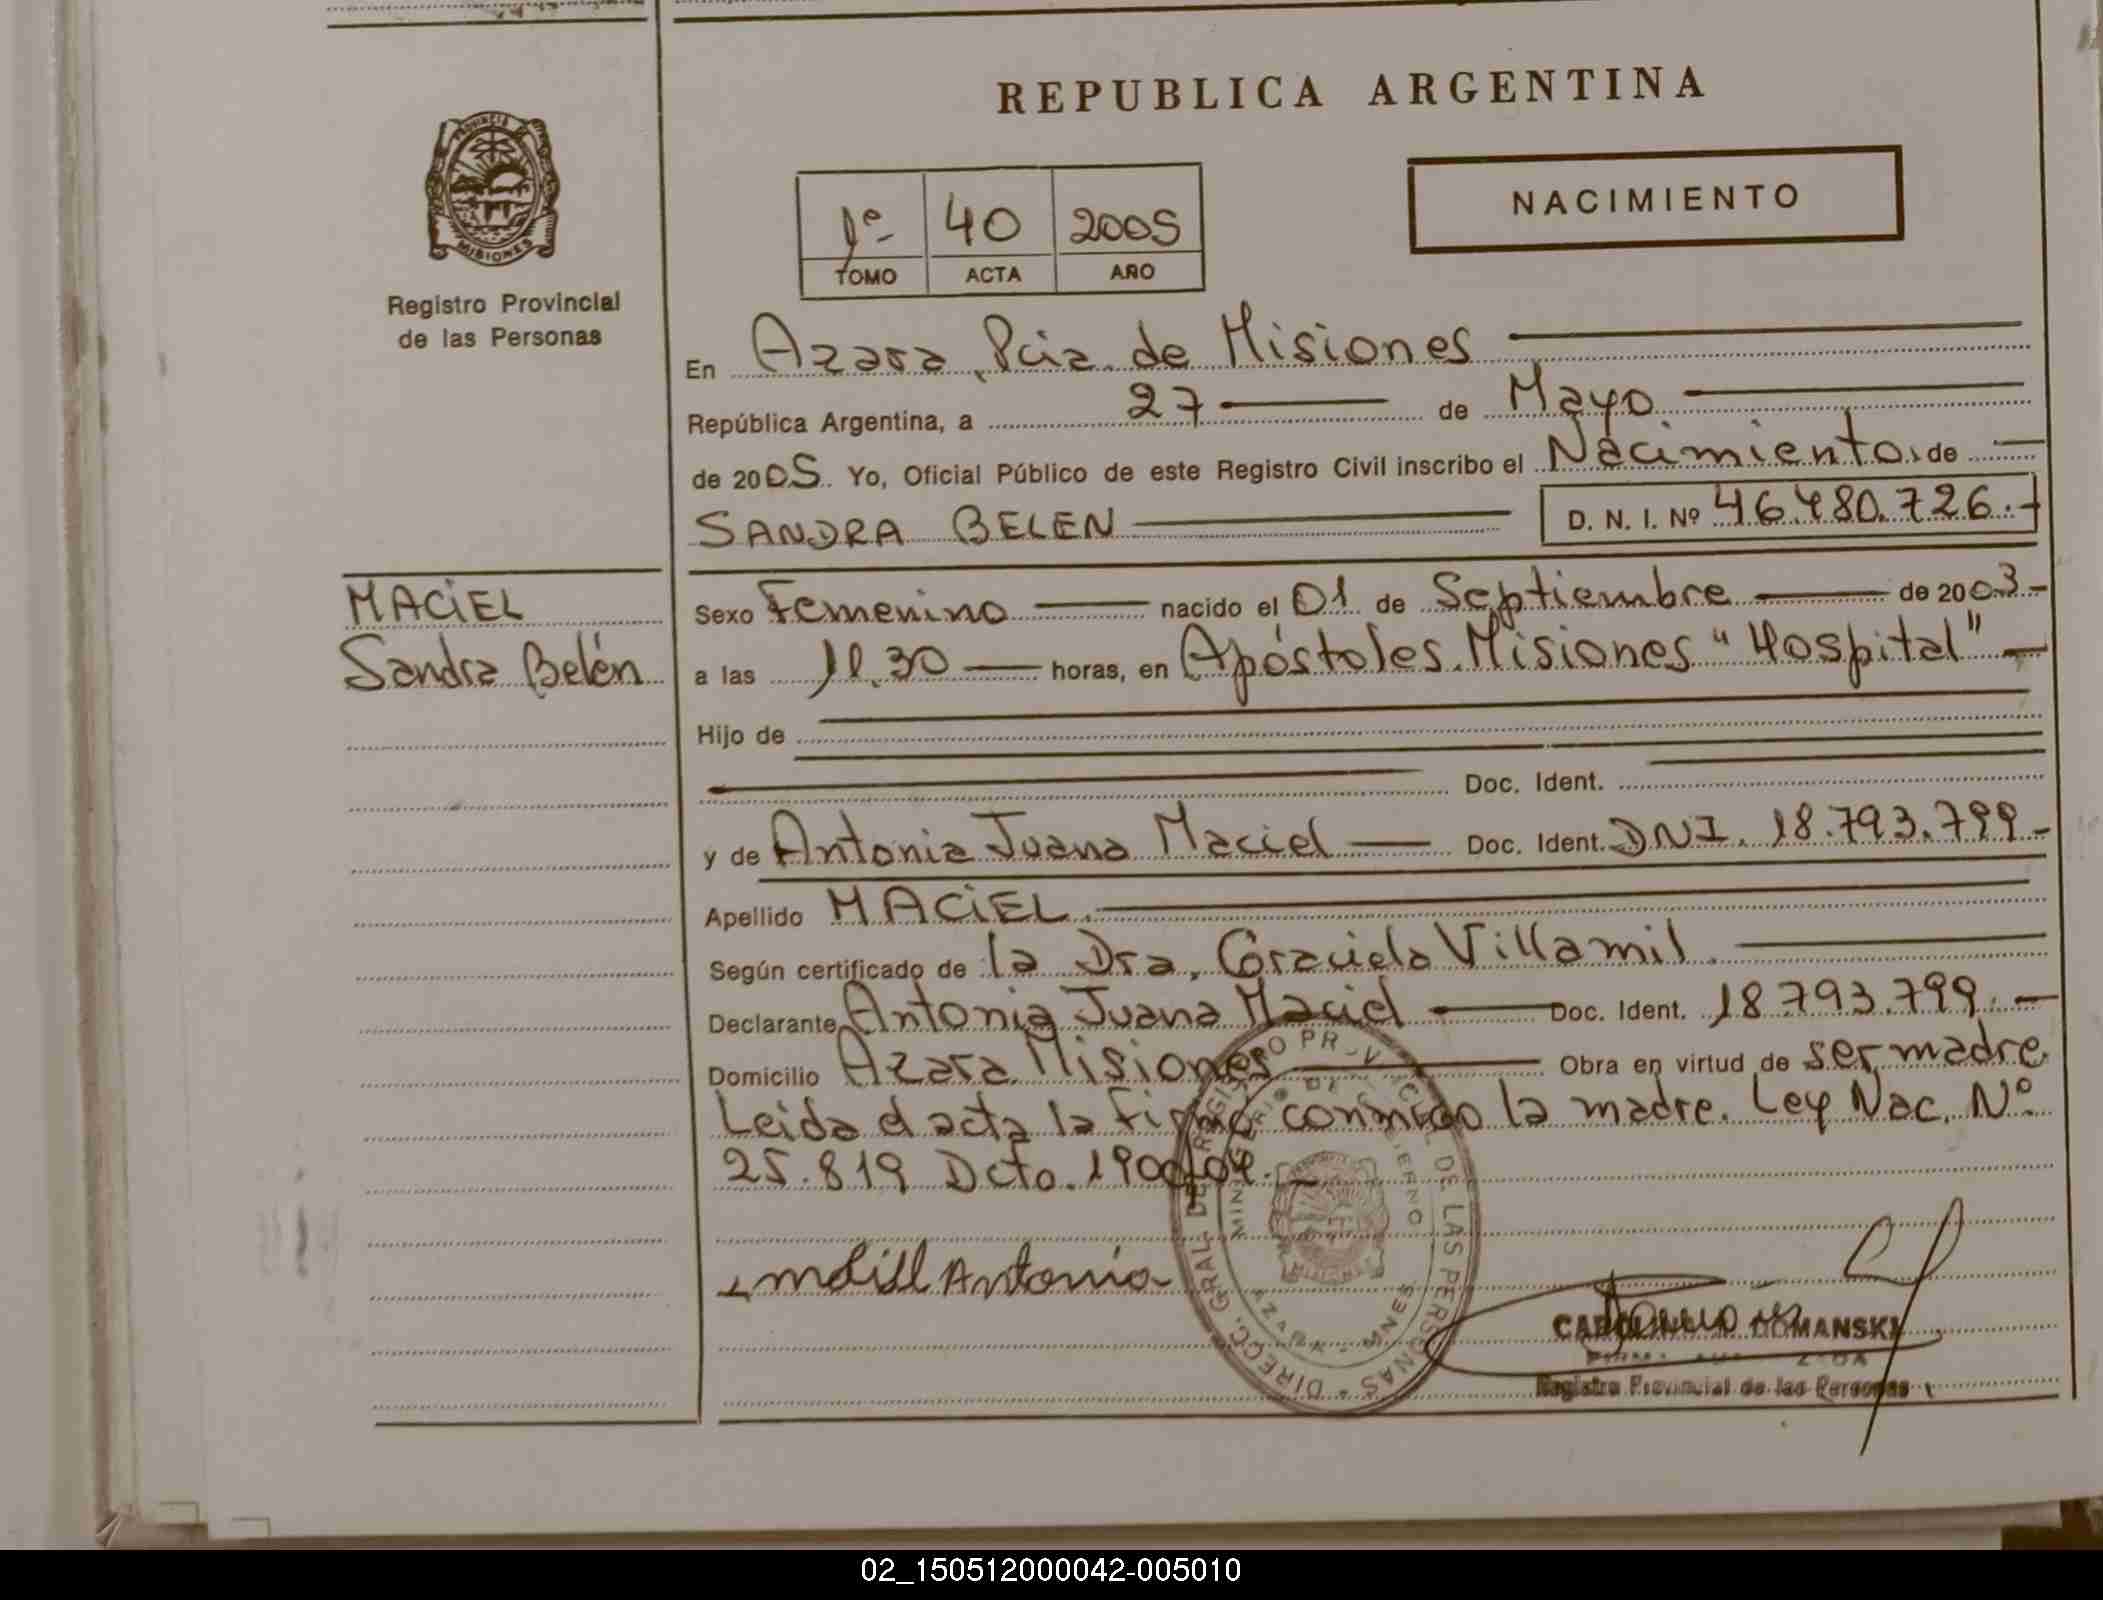 REPUBLICA ARGENTINA
NACIMIENTO
1º 40 2005
TOMO ACTA AÑO
PROVINCIA DE
MISIONES
Registro Provincial
de las Personas
En Azara, Pcia. de Misiones
República Argentina, a 27 de Mayo
de 2005. Yo, Oficial Público de este Registro Civil inscribo el Nacimiento, de
SANDRA BELEN D. N. I. Nº 46.480.726.-
MACIEL
Sandra Belén
Sexo Femenino nacido el 01 de Septiembre de 2003-
a las 11.30 horas, en Apóstoles. Misiones "Hospital"
Hijo de
Doc. Ident.
y de Antonia Juana Maciel Doc. Ident. DNI. 18.793.799-
Apellido MACIEL.
Según certificado de la Dra. Graciela Villamil.
Declarante Antonia Juana Maciel Doc. Ident. 18.793.799.-
Domicilio Azara. Misiones Obra en virtud de ser madre
Leida el acta la firma conmigo la madre. Ley Nac. Nº
25.819 Dcto. 190/04.-
Antonia
DIRECC. GRAL. DE REGISTRO PROVINCIAL DE LAS PERSONAS
MINISTERIO DE GOBIERNO
AZARA - MNES
MISIONES
DOMANSKI
Registro Provincial de las Personas
02_150512000042-005010